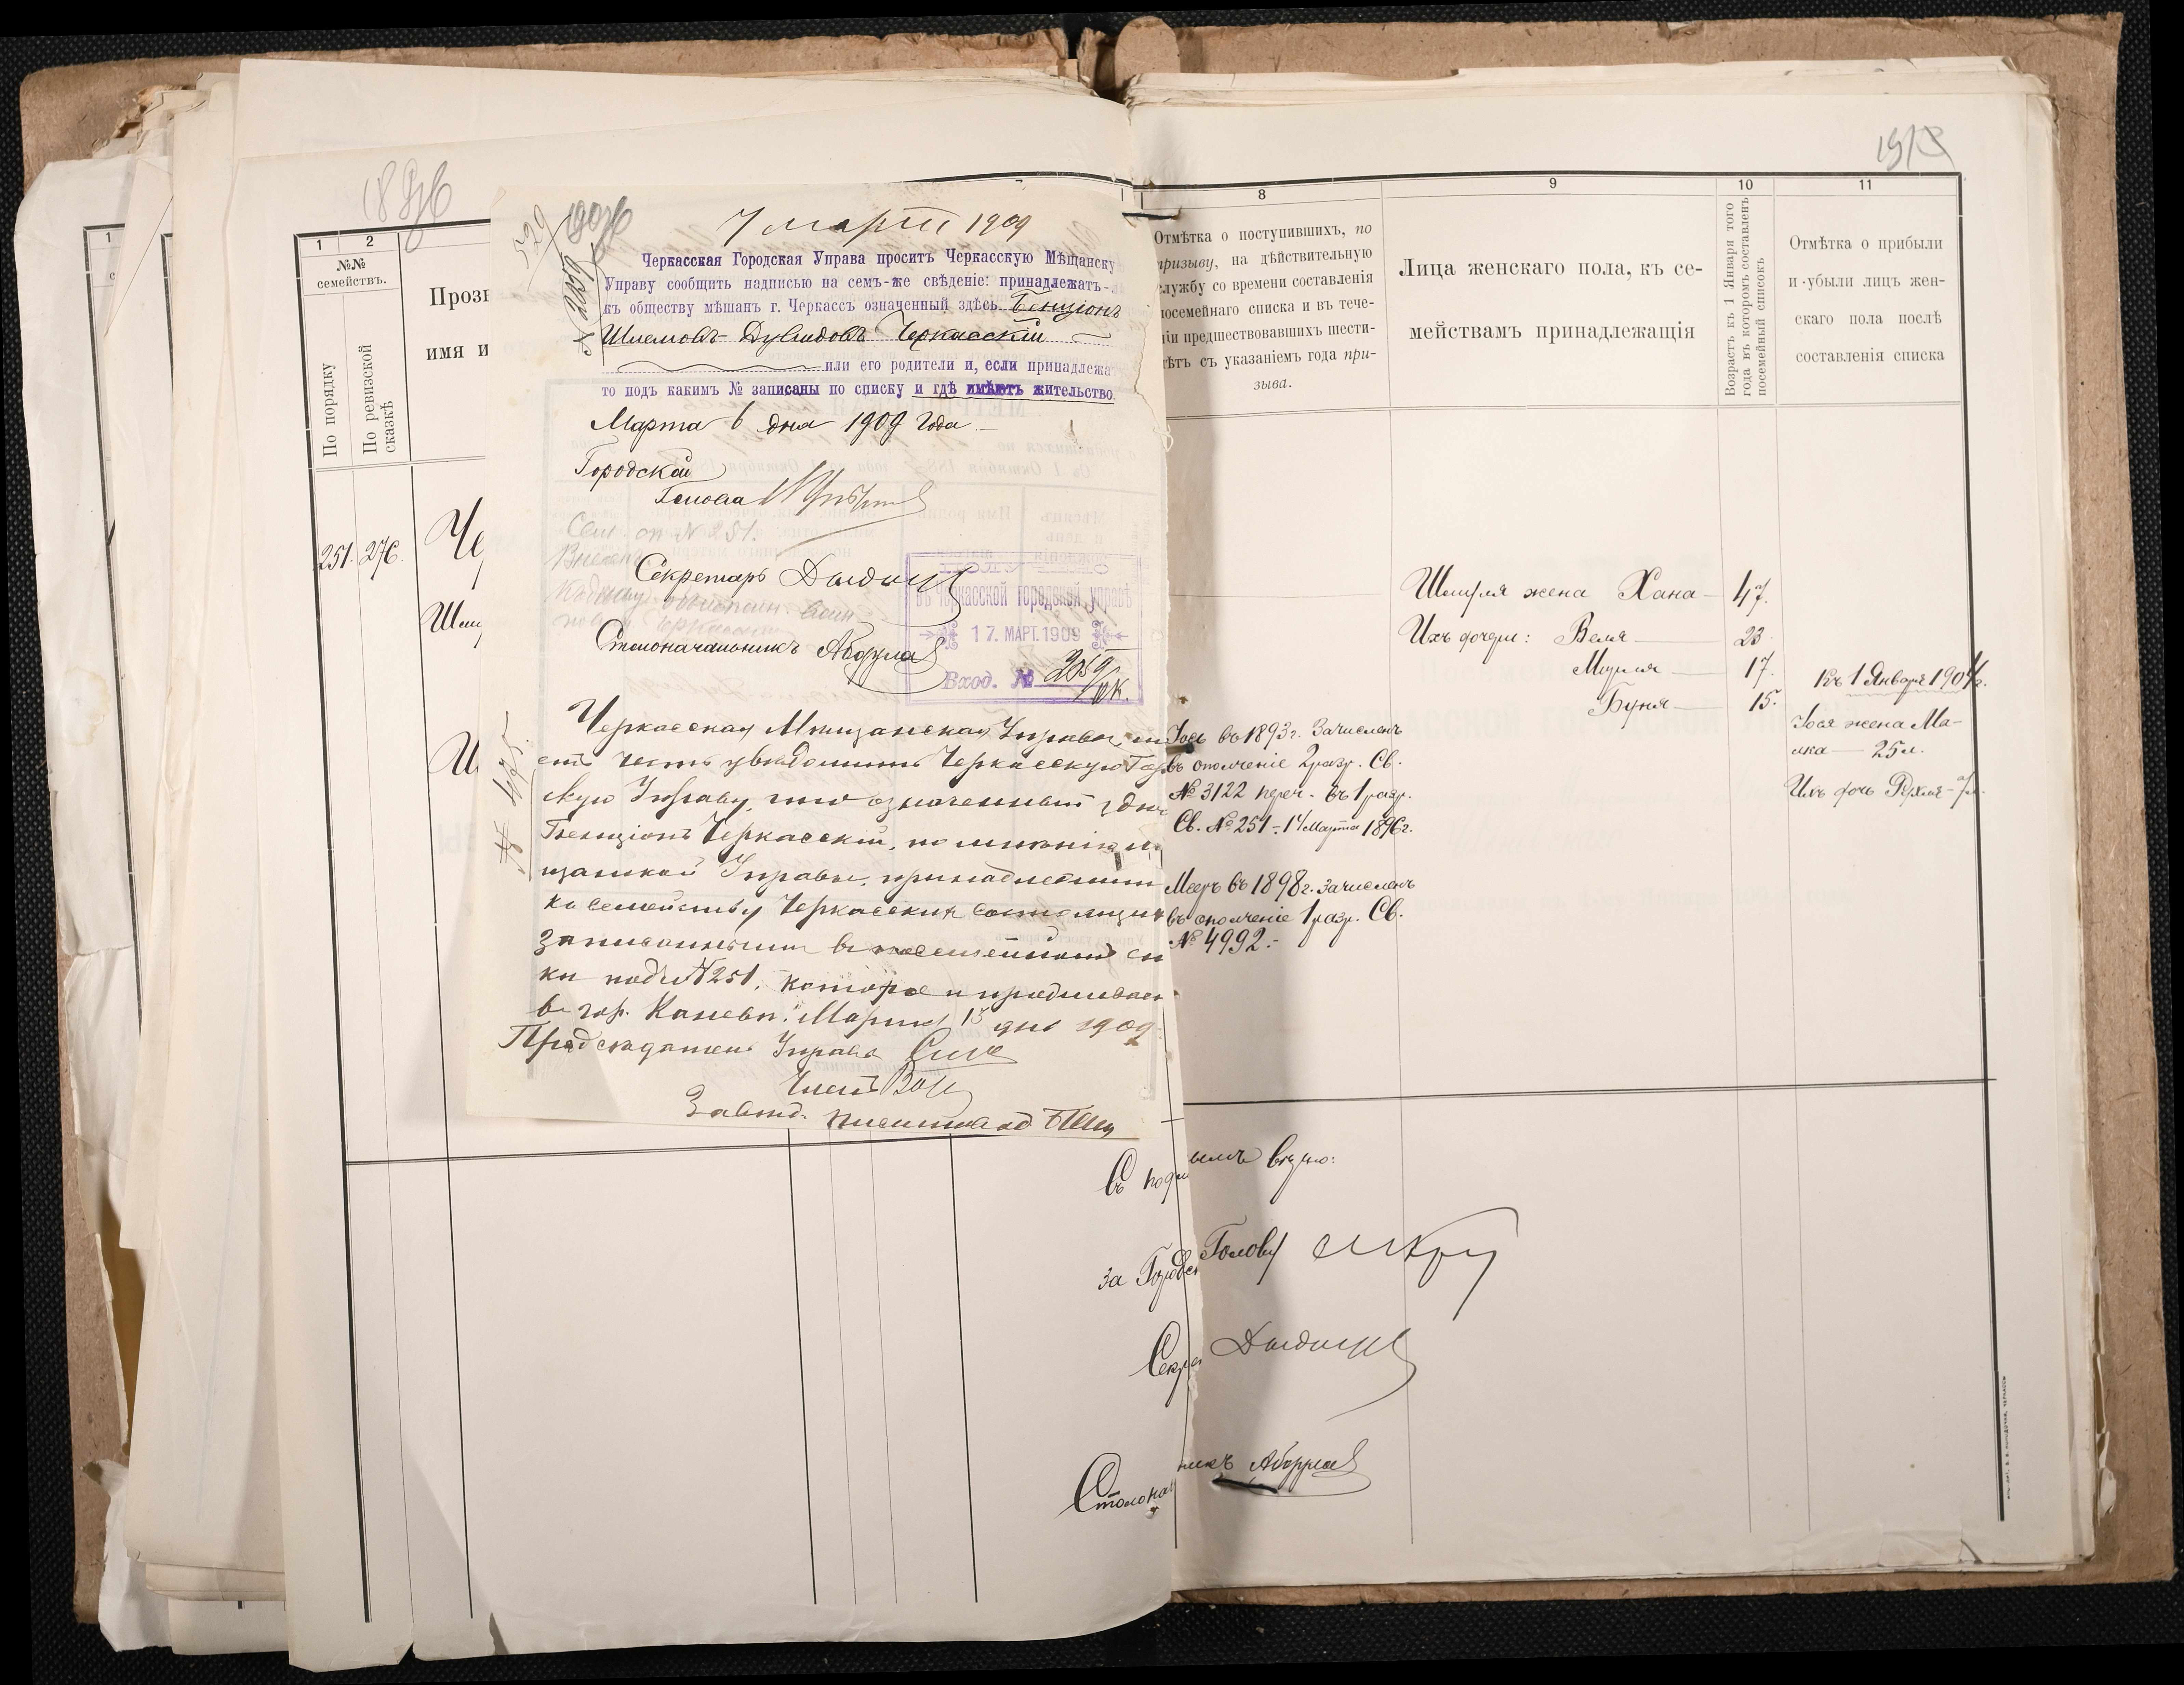 1896
1
2
№№
семействъ.
По порядку
По ревизской
сказкѣ
Прозв
имя и
251.
276.
Че
Шм
529
1909
№ 2059
7 марта 1909
Черкасская Городская Управа проситъ Черкасскую Мѣщанску
Управу сообщить надписью на семъ-же свѣденіе: принадлежатъ-
къ обществу мѣшанъ г. Черкассъ означенный здѣсь Бенціонъ
Шлемовъ-Дувидовъ Черкасскій
или его родители и, если принадлежа
то подъ какимъ № записаны по списку и гдѣ имѣютъ жительство.
Марта 6 дня 1909 года
Городской
Голова
Сем. сп № 251.
Секретарь
Столоначальникъ
въ Черкасской городской управѣ
17. МАРТ. 1909
Вход. №
№ 495.
Черкасская Мѣщанская Управа, им
етъ честь увѣдомить Черкасскую Гор
скую Управу, что означенный здѣс
Бенціонъ Черкасскій, по мнѣнію М
щанской Управы, принадлежит
къ семейству Черкасскихъ состоящих
записанными въ посемейномъ сп
ки подъ №251, которое и проживает
въ гор. Каневѣ. Марта 15 дня 1909
Предсѣдатель Управы
Членъ
Завѣд. письмовод
8
Отмѣтка о поступившихъ, по
призыву, на дѣйствительную
службу со времени составленія
посемейнаго списка и въ тече-
ніи предшествовавшихъ шести-
лѣтъ съ указаніемъ года при-
зыва.
9
Лица женскаго пола, къ се-
мействамъ принадлежащія
10
Возрастъ къ 1 Января того
года въ которомъ составленъ
посемейный списокъ
11
Отмѣтка о прибыли
и убыли лицъ жен-
скаго пола послѣ
составленія списка
Шмуля жена Хана 47.
Ихъ дочери: Веля 23
17.
Буня 15.
Къ 1 Января 1904 г.
Іося жена Ма-
лка 25 л.
Ихъ дочь Рухля
Іось въ 1893 г. Зачисленъ
въ ополченіе 2 разр. Св.
№ 3122 переч. въ 1 разр.
Св. № 251 - 14 Марта 1896 г.
Мееръ въ 1898 г. зачисленъ
въ ополченіе 1 разр. Св.
№ 4992.-
Съ под
ымъ вѣрно:
за Городск
Голову
Секре
Столонач
никъ